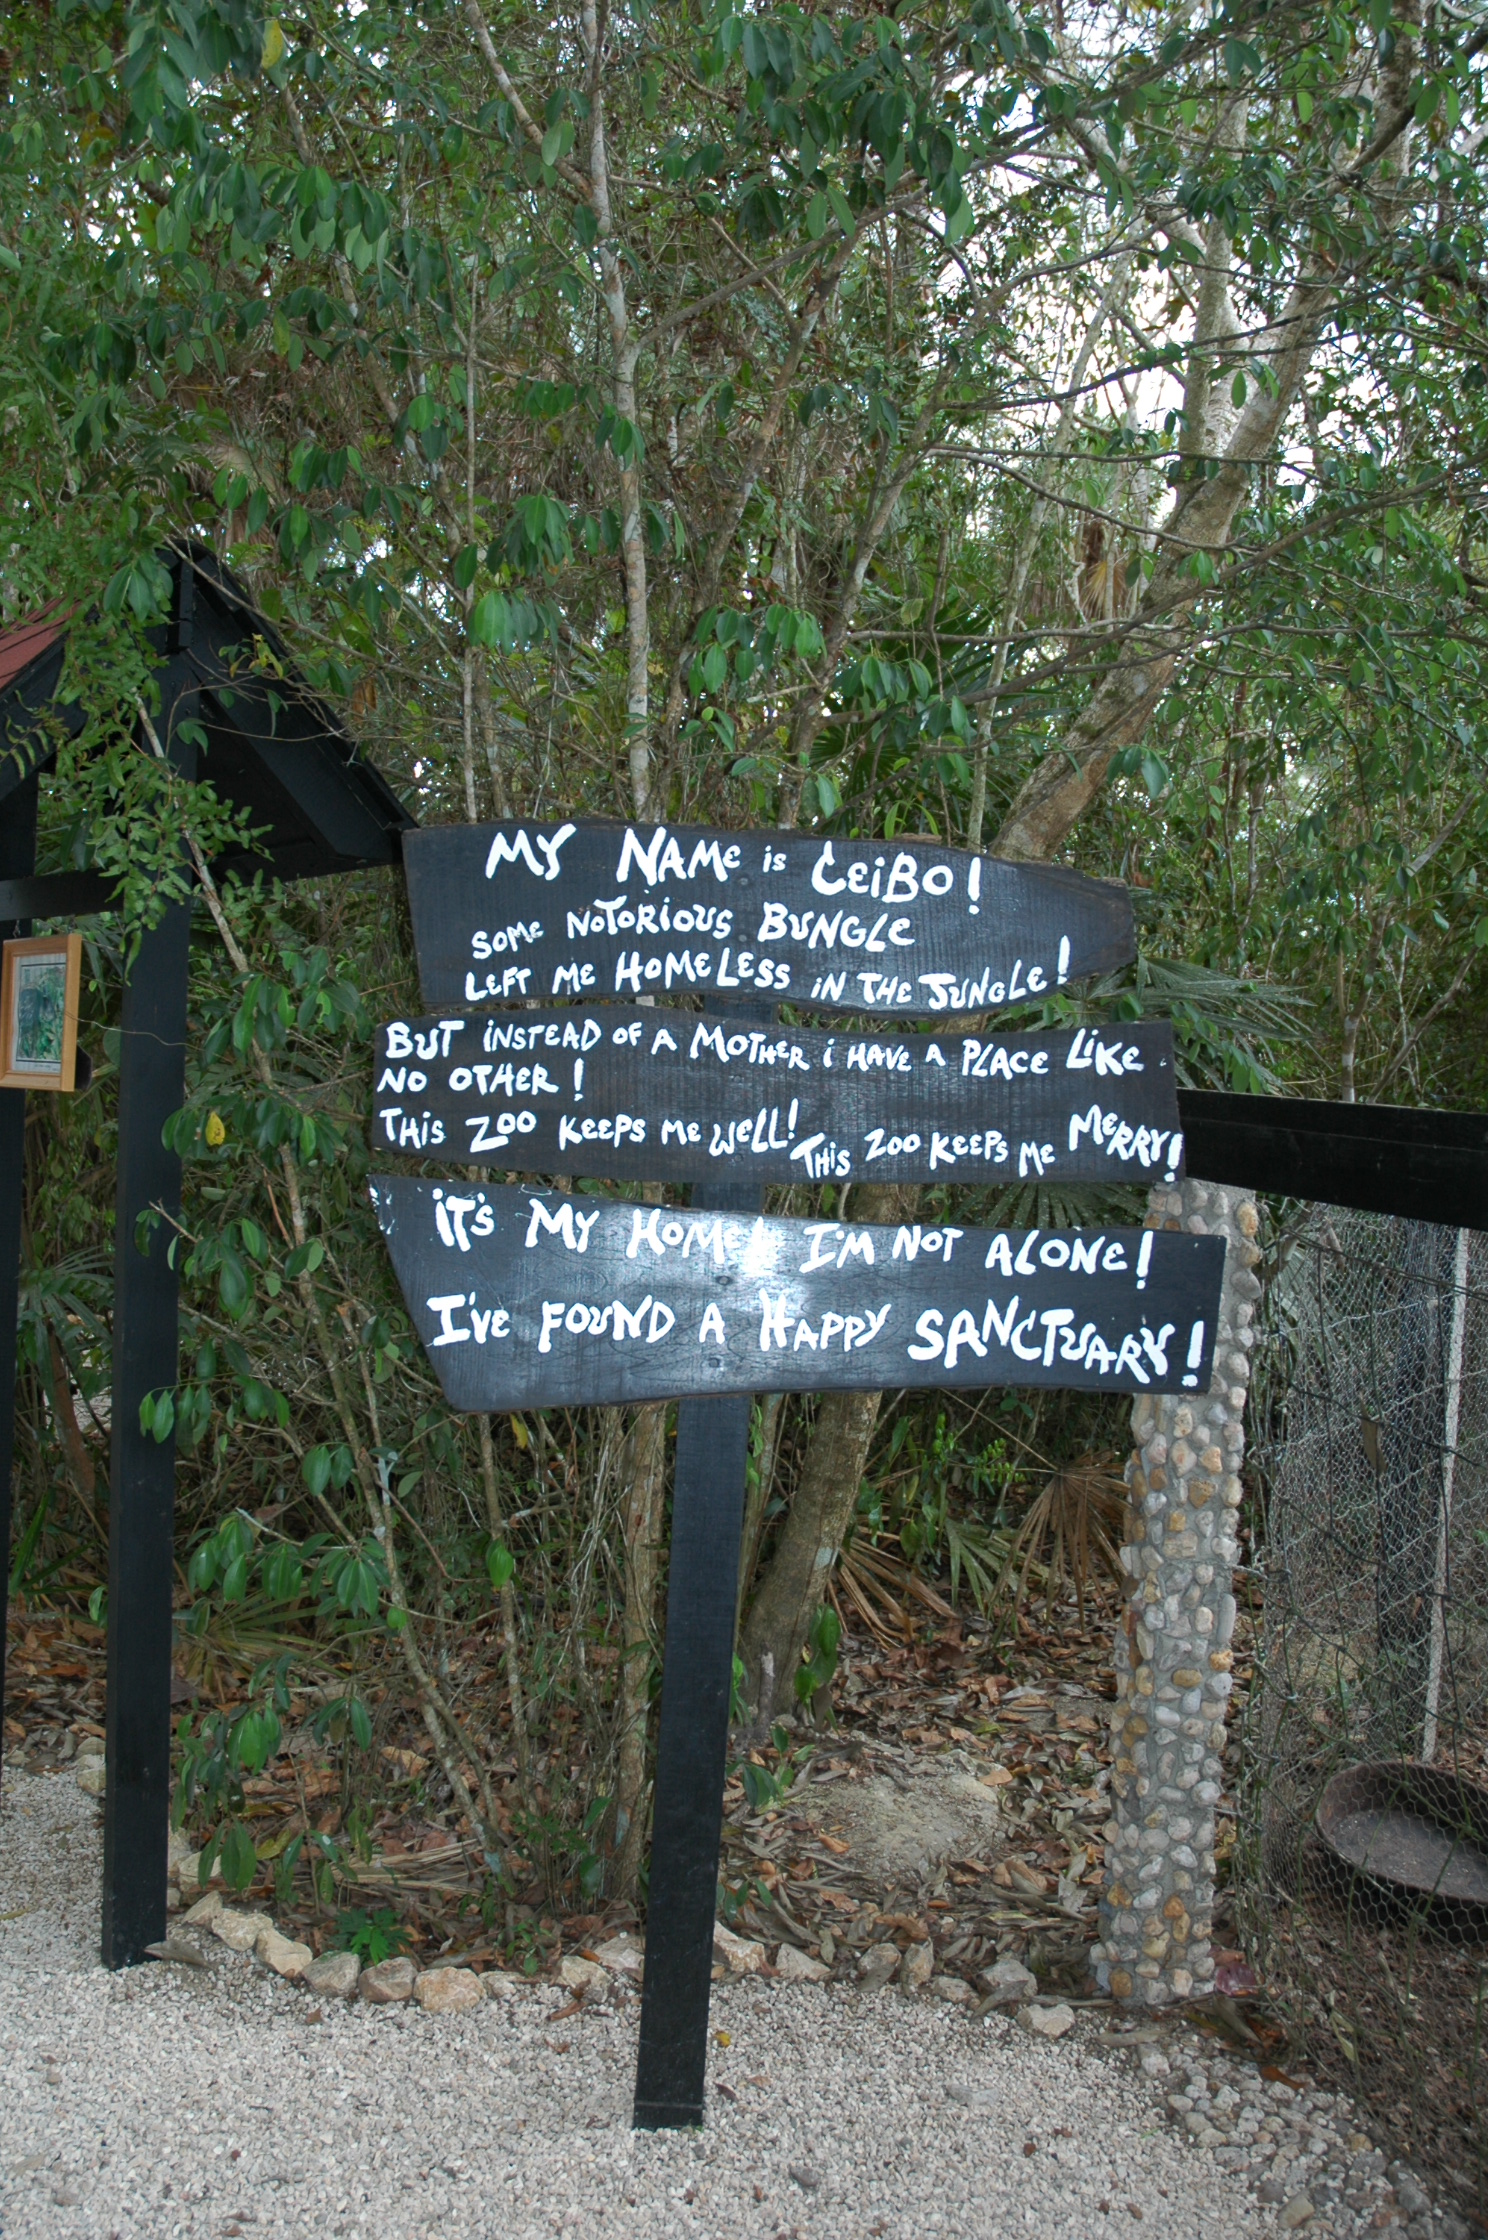 MY NAMe is CeiBO!
SOMe NOTORiOUS BUNGLe
LEFT Me HOMELESS iN THe JUNGLe!
BUT iNSTEAD OF A MOTHeR i HAVe A PLACe LiKe
NO OTHeR!
THis ZOO KeePS Me WeLL! THis ZOO KeePS Me MeRRY!
iT'S MY HOMe! I'M NOT ALONe!
I'Ve FOUND A HAPPY SANCTUARY!